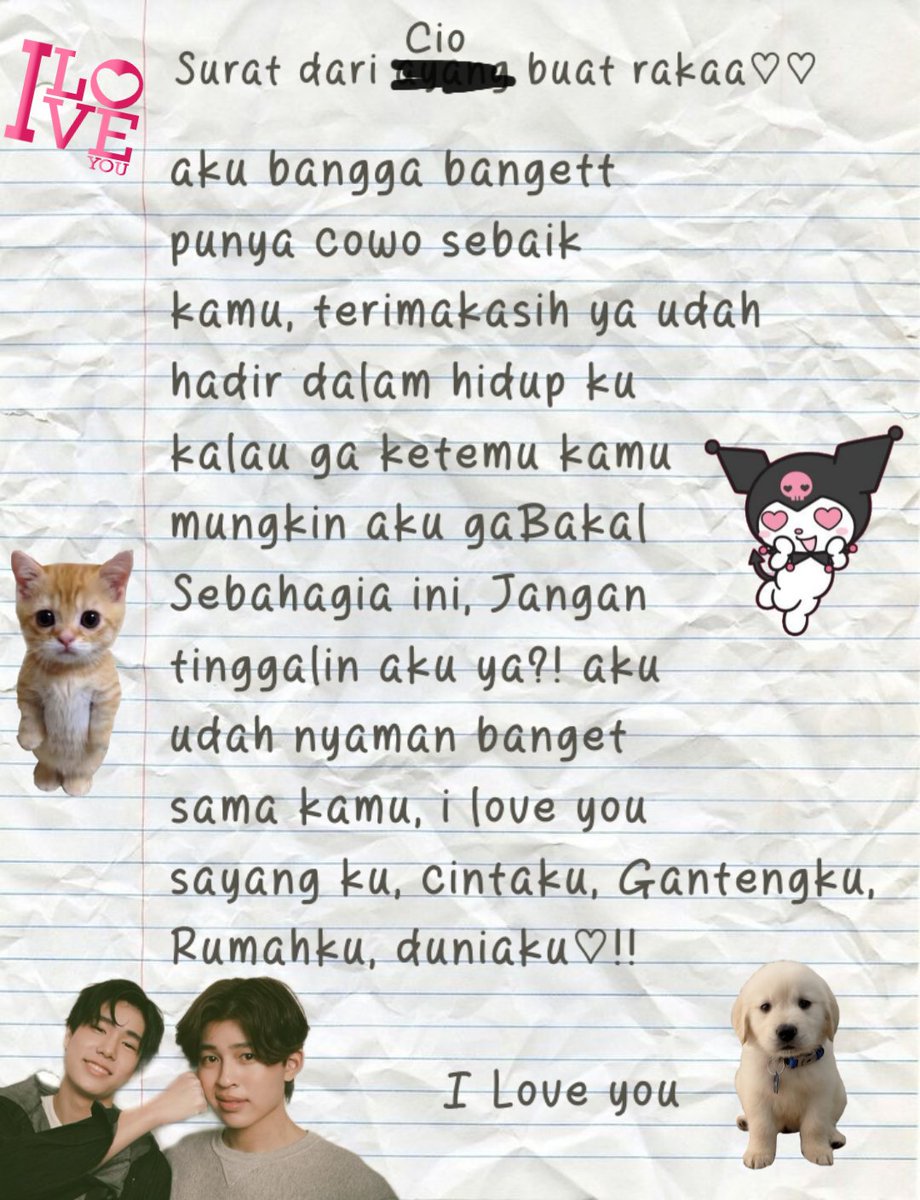 I LOVE YOU
Cio
Surat dari ayang buat rakaa♡♡
aku bangga bangett
punya cowo sebaik
kamu, terimakasih ya udah
hadir dalam hidup ku
kalau ga ketemu kamu
mungkin aku gaBakal
Sebahagia ini, Jangan
tinggalin aku ya?! aku
udah nyaman banget
sama kamu, i love you
sayang ku, cintaku, Gantengku,
Rumahku, duniaku♡!!
I Love you